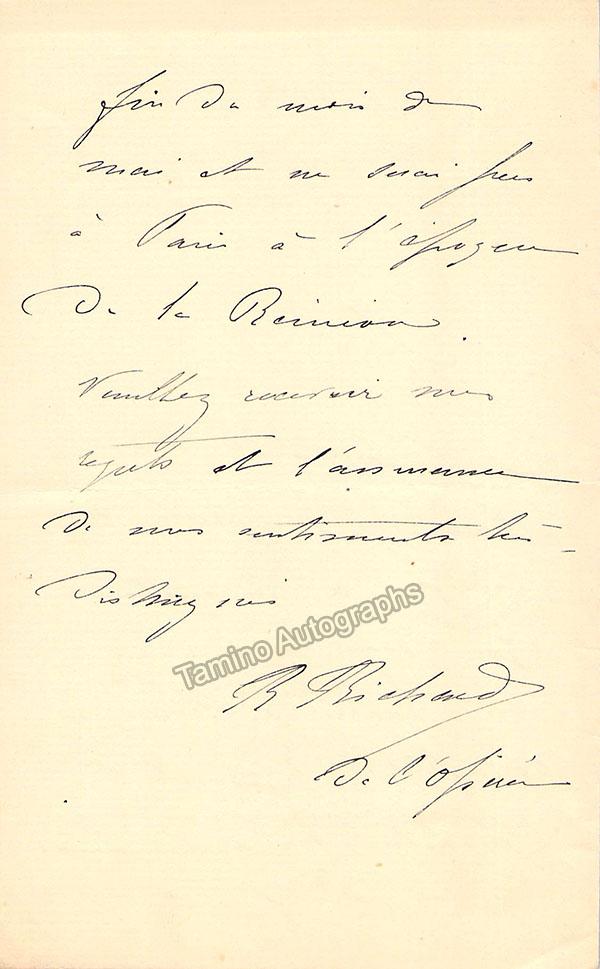 fin du mois de
mai et ne serai pas
à Paris à l'époque
de la Réunion.
Veuillez recevoir mes
regrets et l'assurance
de mes sentiments très
distingués
Tamino Autographs
R Richard
De l'Opéra